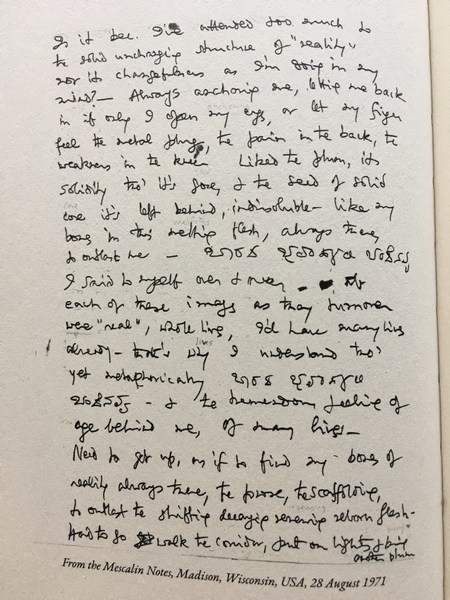 Is it bec. I've attended too much to
the solid unchanging structure of "reality"
nor its changefulness as I'm doing in my
mind? — Always anchoring me, letting me back
in if only I open my eyes, or let my finger
feel the metal plug, the pain in the back, the
weakness in the knee Liked the plum, its
solidity tho' it's gone, & the seed of solid
core it's left behind, indissoluble — like my
bones in this melting flesh, always there,
to outlast me —
I said to myself over & over —
each of these images as they turnover
were "real", whole lives, I'd have many lives
already — that's why I understand tho'
yet metaphorically
— & the tremendous feeling of
age behind me, of many lives —
Need to get up, as if to find my bones of
reality always there, the prose, the scaffolding,
to outlast the shifting decaying renewing reborn flesh —
Had to go walk the corridor, put on lights & bring
another plum
From the Mescalin Notes, Madison, Wisconsin, USA, 28 August 1971